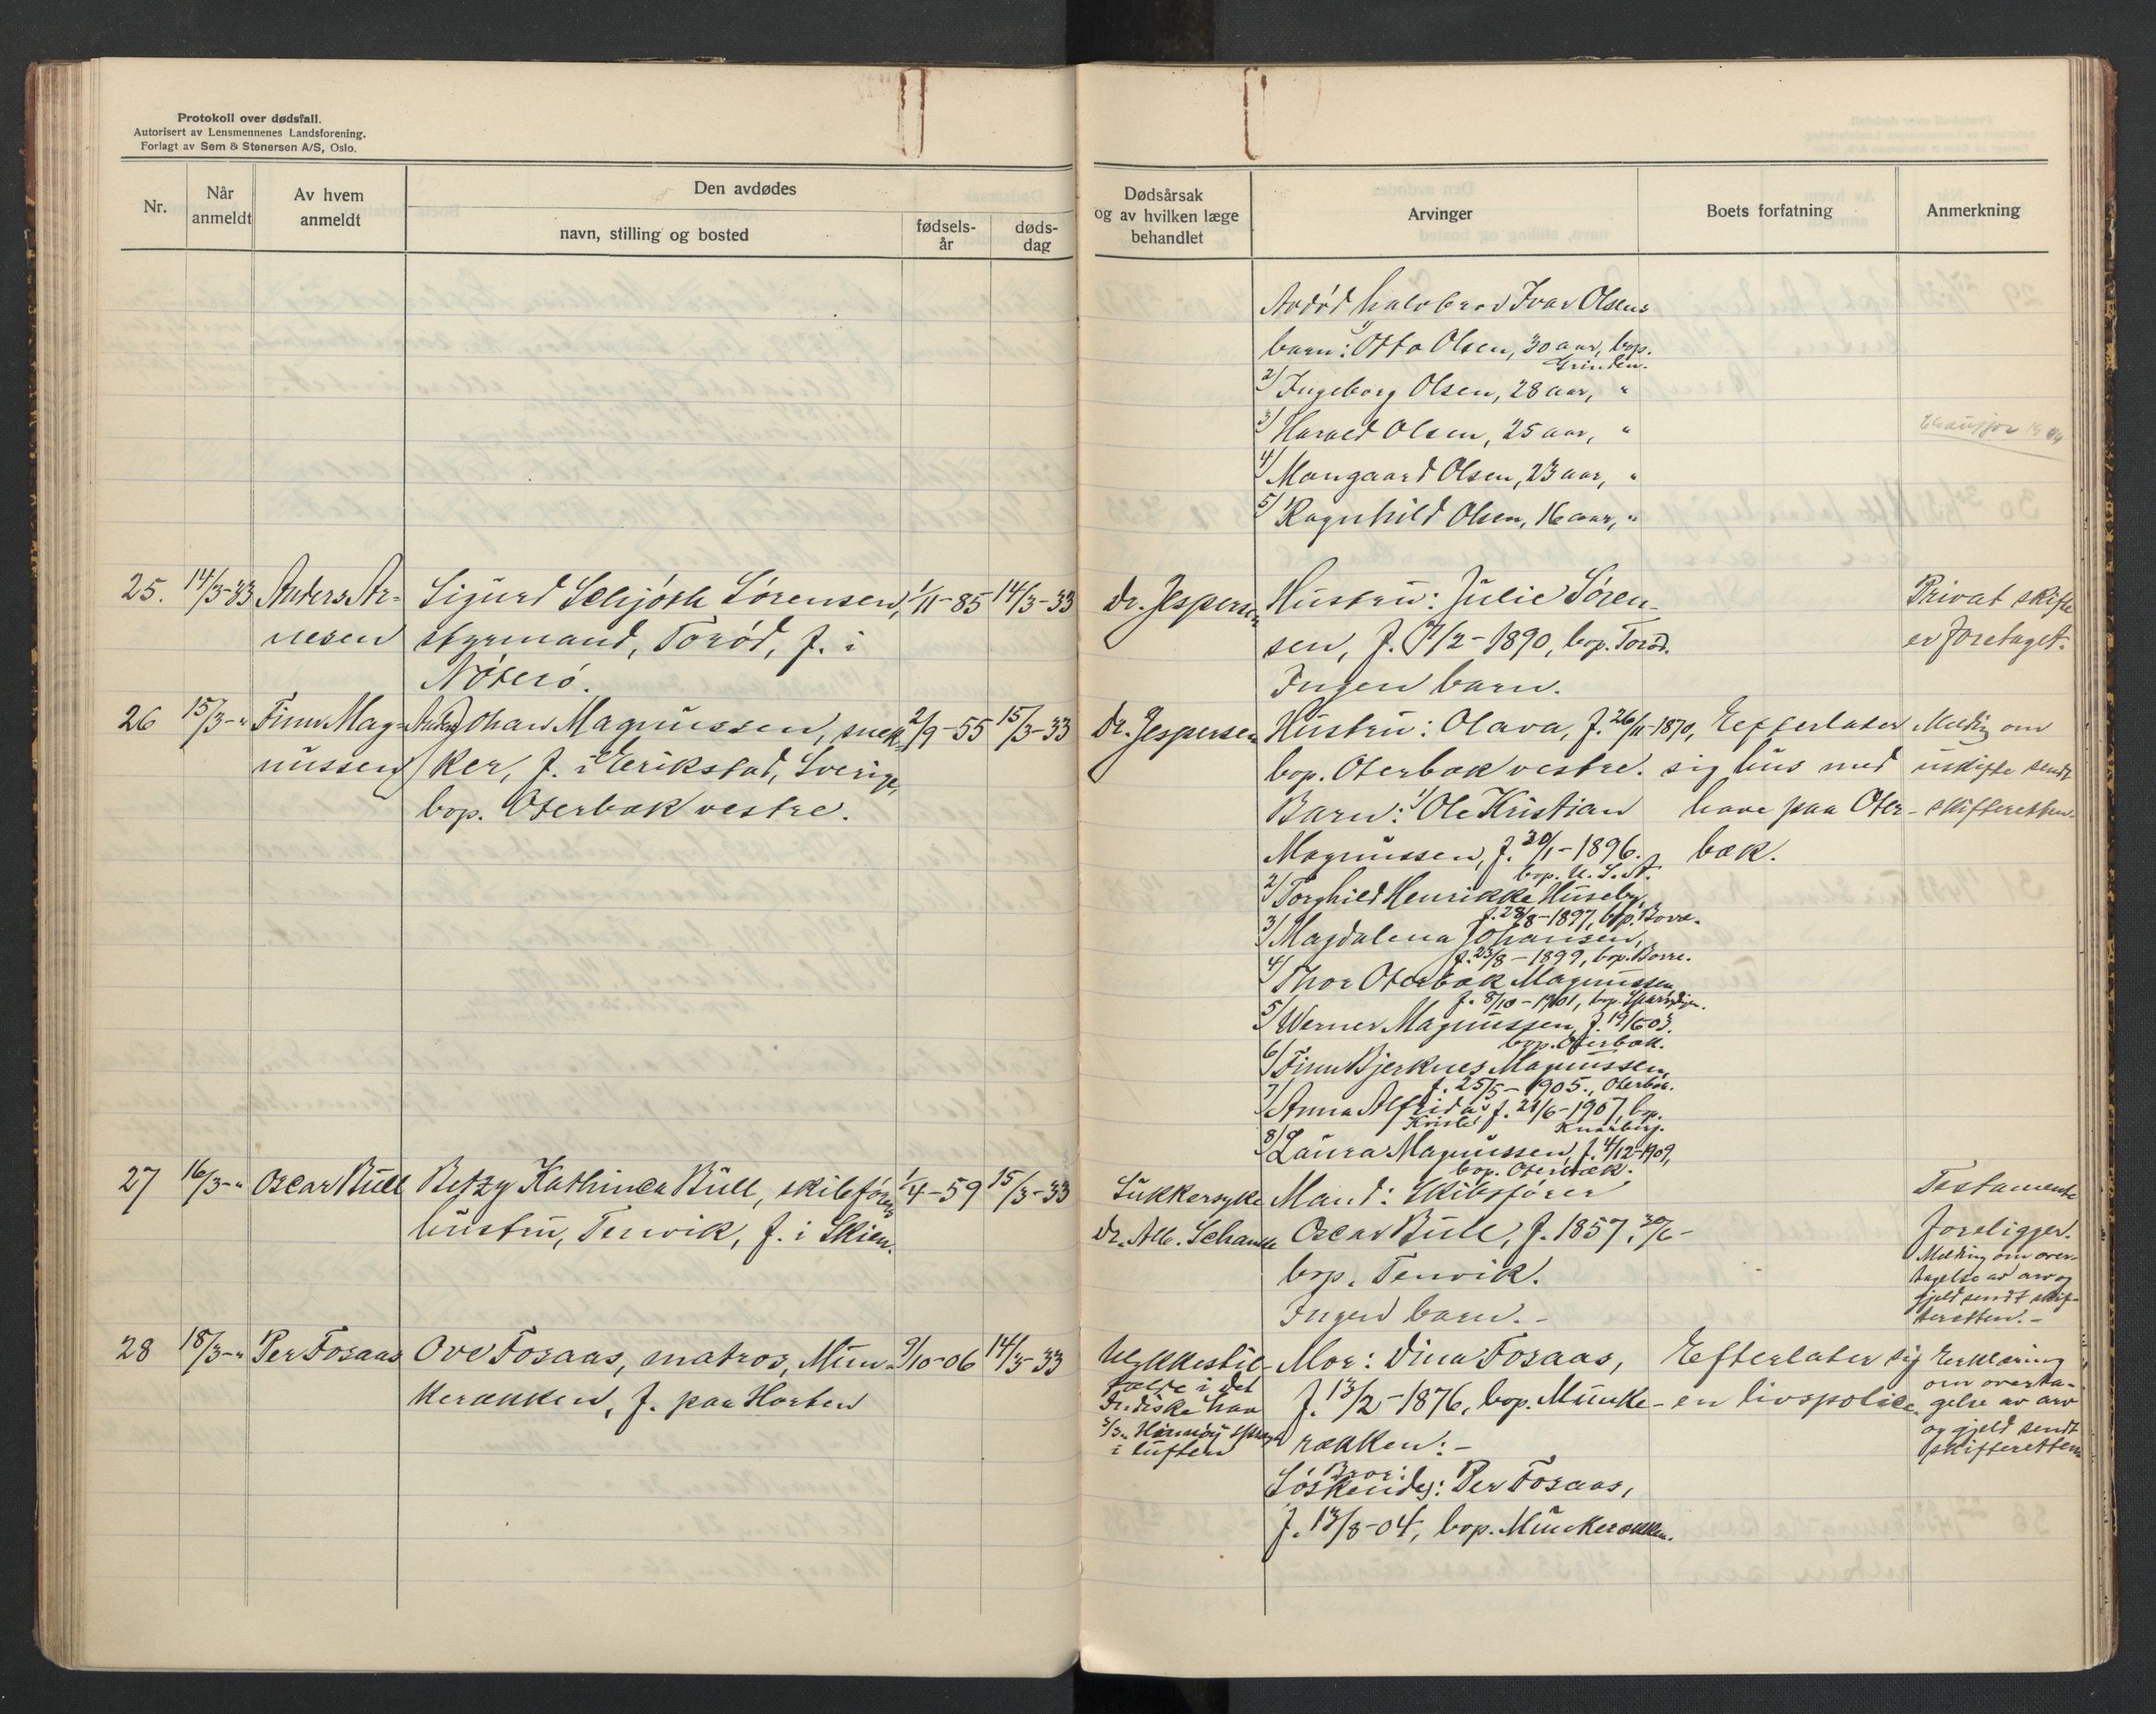 Protokoll over dødsfall.
Autorisert av Lensmennenes Landsforening.
Forlagt av Sem & Stenersen A/S, Oslo.
Nr.
Når
anmeldt
Av hvem
anmeldt
Den avdødes
navn, stilling og bosted
fødsels-
år
døds-
dag
Dødsårsak
og av hvilken læge
behandlet
Arvinger
Boets forfatning
Anmerkning
Avdød halvbror Ivar Olsens
barn: 1/ Otto Olsen, 30 aar, bop.
Grinden.
2/ Ingeborg Olsen, 28 aar, "
3/ Harald Olsen, 25 aar, "
4/ Mangaard Olsen, 23 aar, "
5/ Ragnhild Olsen, 16 aar, "
25. 14/3-33 Anders Ar-
nesen
Sigurd Schjöth Sörensen,
styrmand, Torød, f. i
Nöterö.
1/11-85 14/3-33
Dr. Jespersen
Hustru: Julie Sören-
sen, f. 7/2-1890, bop. Torød.
Ingen barn.
Privat skifte
er foretaget.
26 15/3-" Finn Mag-
nussen
Anders Johan Magnussen, snek-
ker, f. i Erikstad, Sverige,
bop. Oterbæk vestre.
2/9-55 15/3-33
Dr. Jespersen
Hustru: Olava, f. 26/11-1870,
bop. Oterbæk vestre.
Barn: 1/ Ole Kristian
Magnussen, f. 20/1-1896.
bop. U.S.A.
2/ Torghild Henrikke Huseby,
f. 28/8-1897, bop. Borre.
3/ Magdalena Johansen,
f. 23/8-1899, bop. Borre.
4/ Thor Oterbæk Magnussen,
f. 8/10-1901, bop.
5/ Werner Magnussen, f. 19/6-03.
bop. Oterbæk.
6/ Finn Bjerknes Magnussen,
f. 25/5-1905., Oterbæk.
7/ Anna Alfrida, f. 21/6-1907, bop.
Knarberg.
8/ Laura Magnussen, f. 4/12-1909,
bop. Oterbæk.
Efterlater
sig hus med
have paa Oter-
bæk.
Melding om
uskifte sendt
skifteretten.
27 16/3-" Oscar Bull
Betzy Kathinca Bull, skibsförer-
hustru, Tenvik, f. i Skien.
1/4-59 15/3-33
Sukkersyke
Dr. Alb. Schanche
Mand: Skibsfører
Oscar Bull, f. 1857, 30/6-
bop. Tenvik.
Ingen barn.-
Testamente
foreligger.
Melding om over-
tagelse av arv og
gjeld sendt skif-
teretten.-
28 18/3-" Per Fosaas
Ove Fosaas, matros, Mun-
kerækken, f. paa Horten
9/10-06 14/3-33
Ulykkestil-
fælde i det
Indiske hav
i luften
Mor: Dina Fosaas,
f. 13/2-1876, bop. Munke-
rækken:-
Bror:
Söskende: Per Fosaas,
f. 13/8-04, bop. Munkerækken.
Efterlater sig
en livspolice.
Erklæring
om overta-
gelse av arv
og gjeld sendt
skifteretten